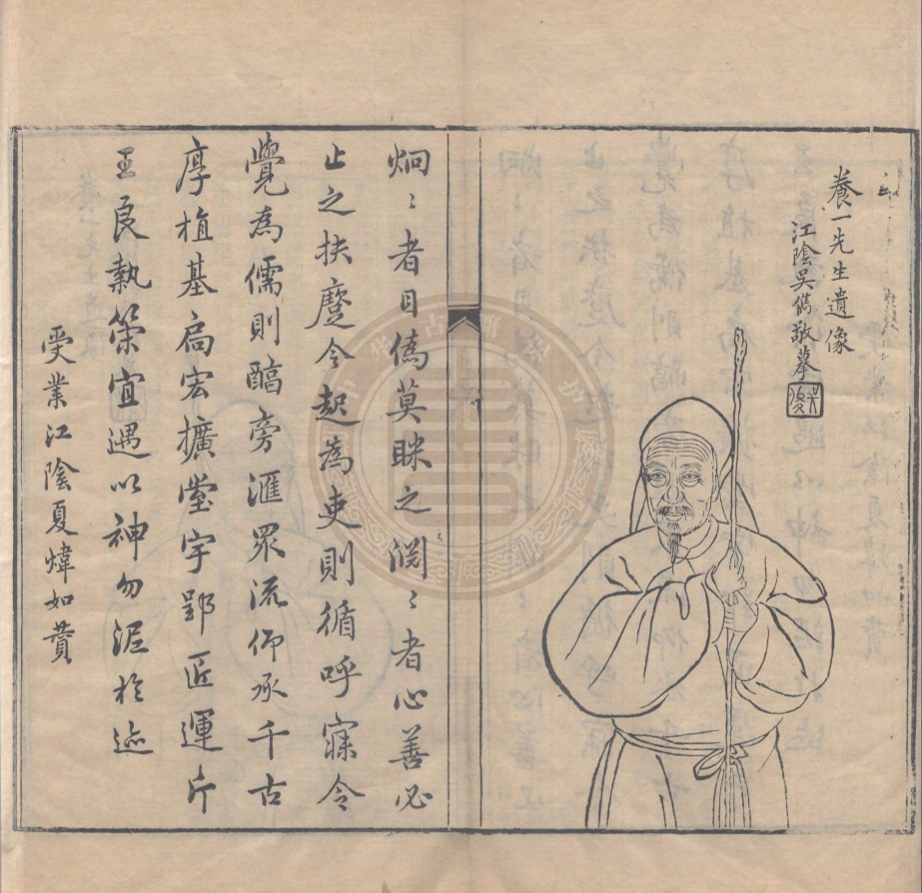 養一先生遺像
江陰吳儁敬摹
炯〻者目僞莫眯之淵〻者心善必
止之扶蹇令起為吏則循呼寐令
覺為儒則醕旁滙眾流仰承千古
厚植基扃宏擴堂宇郢匠運斤
王良執策宜遇以神勿泥於迹
受業江陰夏煒如贊